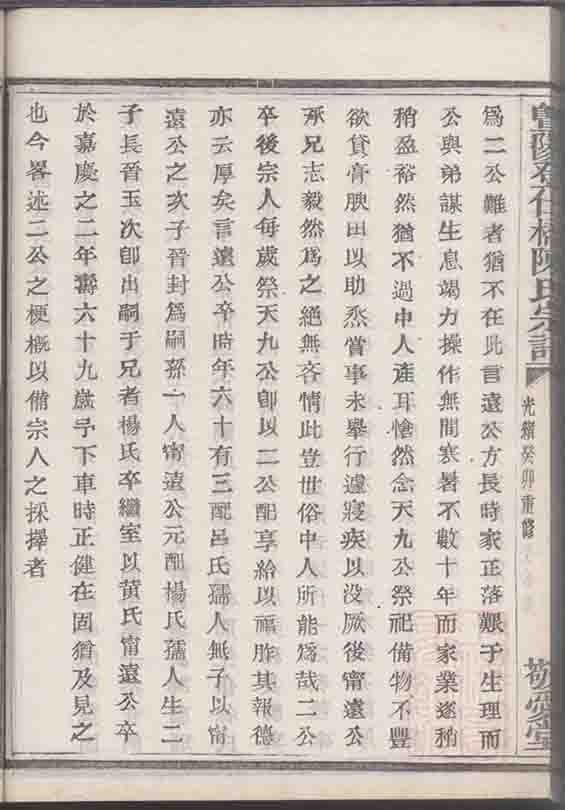 暨陽 橋陳氏宗譜 光緒癸卯重修 敬愛堂
為二公難者猶不在此言遠公方長時家正落艱于生理而
公與弟謀生息竭力操作無間寒暑不數十年而家業遂稍
稍盈裕然猶不過中人產耳愴然念天九公祭祀備物不豐
欲貸膏腴田以助烝嘗事未舉行遽寢疾以沒厥後甯遠公
承兄志毅然為之絕無吝情此豈世俗中人所能為哉二公
卒後宗人每歲祭天九公卽以二公配享給以福胙其報德
亦云厚矣言遠公卒時年六十有三配呂氏孺人無子以甯
遠公之次子晉封為嗣孫一人甯遠公元配楊氏孺人生二
子長晉玉次卽出嗣于兄者楊氏卒繼室以黃氏甯遠公卒
於嘉慶之二年壽六十九歲予下車時正健在固猶及見之
也今畧述二公之梗概以備宗人之採擇者